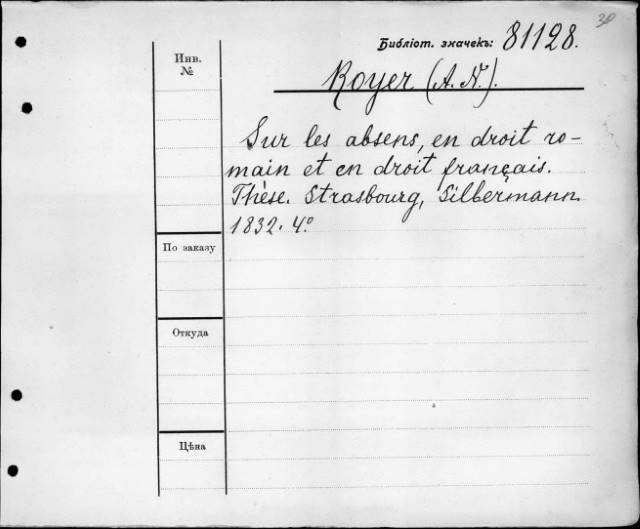 30
Библіот. значекъ: 81128.
Инв.
№
Royer (A. N.).
Sur les absens, en droit ro-
main et en droit français.
Thèse. Strasbourg, Silbermann.
1832. 4º
По заказу
Откуда
Цѣна